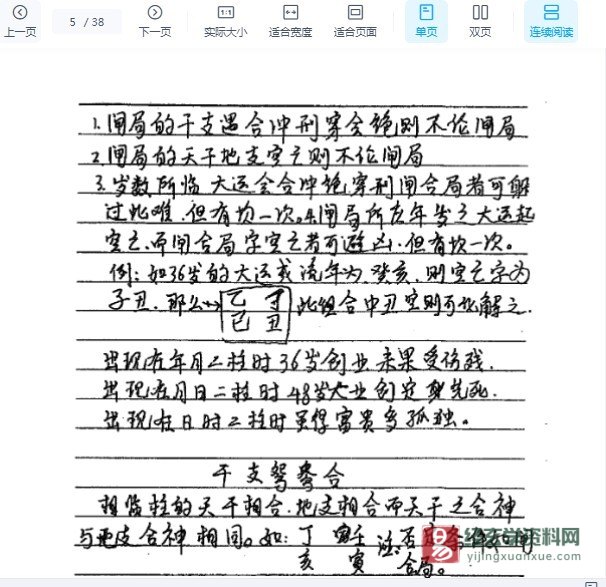 上一页 5 / 38 下一页 实际大小 适合宽度 适合页面 单页 双页 连续阅读
1. 闸局的干支遇合冲刑穿会绝则不伦闸局
2. 闸局的天干地支空亡则不伦闸局
3. 岁数所临大运会合冲绝穿刑闸合局者可解
过此难.但有坎一次。4.闸局所在年岁之大运起
空亡.而闸合局字空亡者可避凶.但有坎一次。
例:如36岁的大运或流年为癸亥.则空亡字为
子丑.那么 乙丁 此组合中丑空则可化解之.
巳丑
出现在年月二柱时36岁创业未果受伤残.
出现在月日二柱时48岁大业创定身先死.
出现在日时二柱时虽得富贵多孤独。
干支鸳鸯合
相临柱的天干相合.地支相合而天干之合神
与地支合神相同。如:丁 壬 注:否
亥 寅 合局。
易 经玄学资料网
yijingxuanxue.com